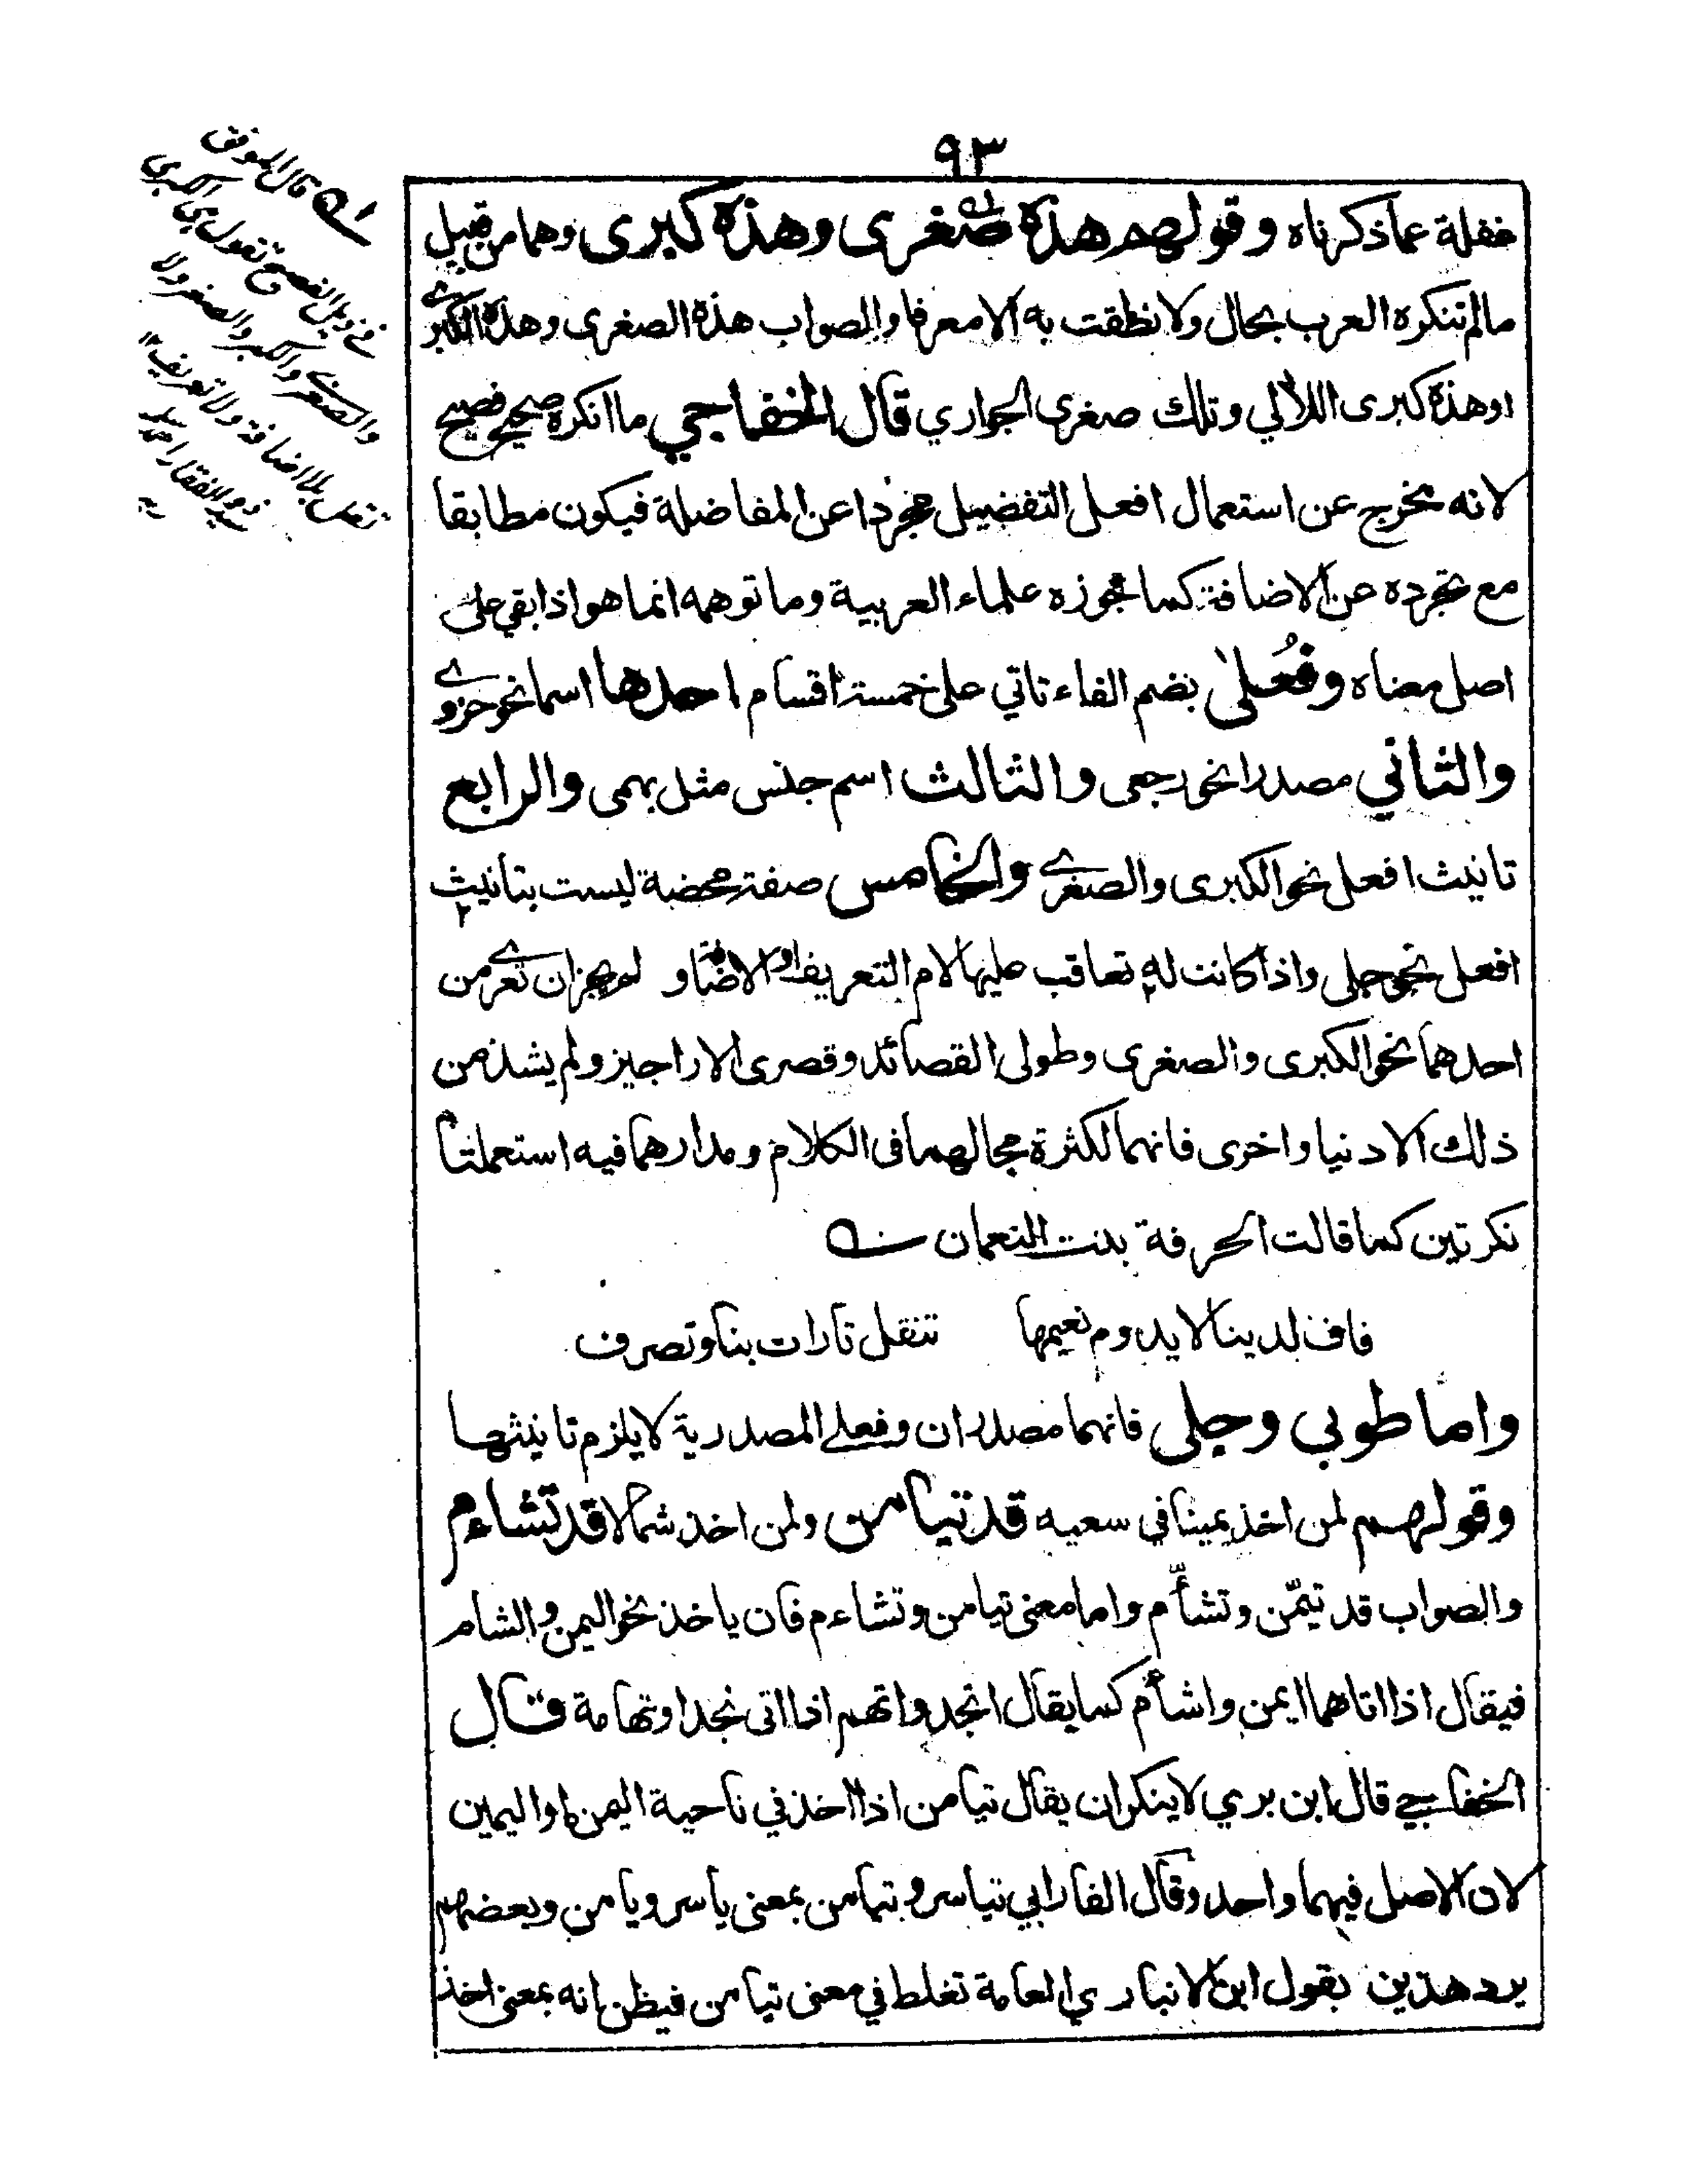 ٩٣
غفلة عما ذكرناه وقولهم هذه صغرى وهذه كبرى وهما من قبيل
ما لم تنكره العرب بحال ولا نطقت به الا معرفا والصواب هذه الصغرى وهذه الكبرى
او هذه كبرى اللآلي وتلك صغرى الجواري قال الخفاجي ما انكره صحيح فصيح
لانه يخرج عن استعمال افعل التفضيل مجردا عن المفاضلة فيكون مطابقا
مع تجرده عن الاضافة كما جوزه علماء العربية وما توهمه انما هو اذا بقي على
اصل معناه وفُعلى بضم الفاء تاتي على خمسة اقسام احدها اسما نحو حزوى
والثاني مصدرا نحو رجعى والثالث اسم جنس مثل بهمى والرابع
تانيث افعل نحو الكبرى والصغرى والخامس صفة محضة ليست بتانيث
افعل نحو حبلى واذا كانت له تعاقب عليها لام التعريف او الاضافة ولم يجز ان تعرى من
احدهما نحو الكبرى والصغرى وطولى القصائد وقصرى الاراجيز ولم يشذ من
ذلك الا دنيا واخرى فانهما لكثرة مجالهما فى الكلام ومدارهما فيه استعملتا
نكرتين كما قالت الحرقة بنت النعمان
فاف لدينا لا يدوم نعيمها تنقل تارات بنا وتصرف
واما طوبى وجلى فانهما مصدران وفعلى المصدرية لا يلزم تانيثها
وقولهم لمن اخذ يمينا في سعيه قد تيامن ولمن اخذ شمالا قد تشاءم
والصواب قد تيمّن وتشأّم واما معنى تيامن وتشاءم فان ياخذ نحو اليمن والشام
فيقال اذا اتاهما ايمن واشأم كما يقال انجد واتهم اذا اتى نجدا وتهامة قال
الخفاجي قال ابن بري لا ينكر ان يقال تيامن اذا اخذ في ناحية اليمن او اليمين
لان الاصل فيهما واحد وقال الفارابي تياسر وتيامن بمعنى ياسر ويامن وبعضهم
يرد هذين بقول ابن الانباري العامة تغلط في معنى تيامن فيظن انه بمعنى اخذ
قال الموفق
في ذيل الفصيح تقول هي الكبرى
والصغرى والكبر والصغر ولا
تقال بلا اضافة ولا تعريف ١٢
ذو الفقار احمد